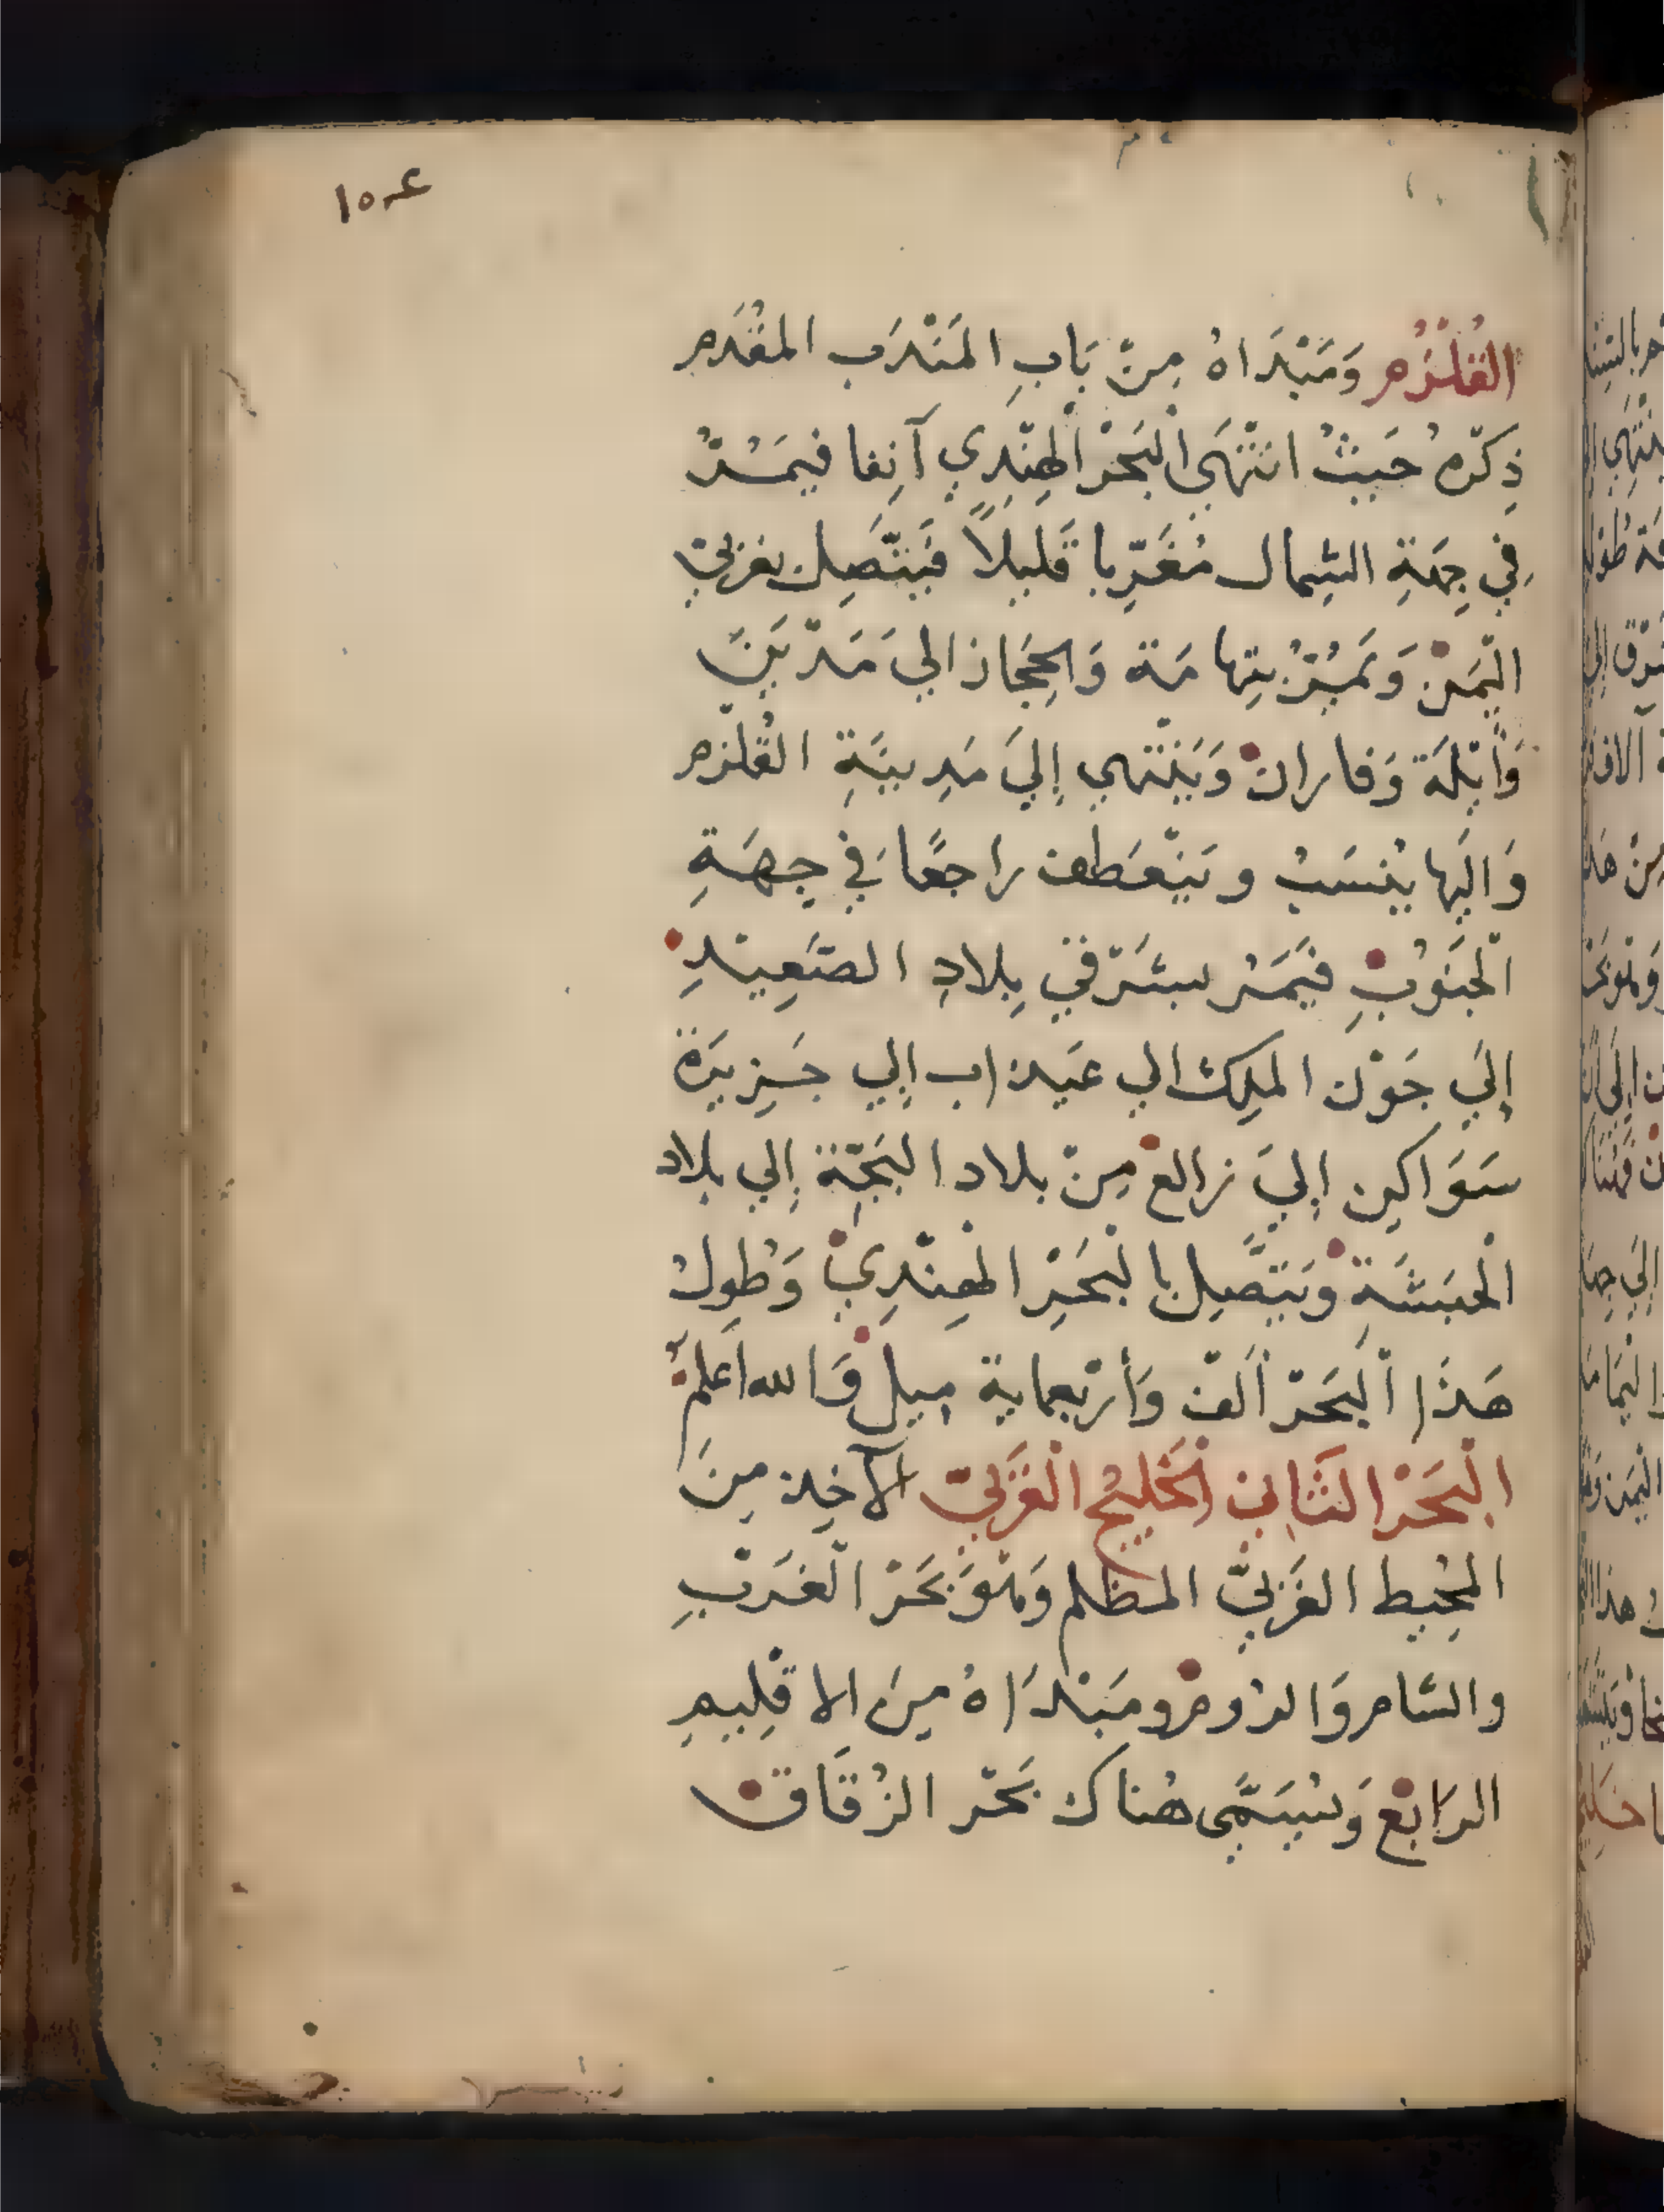 القُلْزُم وَمَبْدَاهُ مِنْ بَابِ المَنْدَب المقْدَم
ذِكْرهُ حَيثُ انْتَهَى الْبَحْر الْهِنْدِي آنِفا فيمَُرُّ
فِي جِهَةِ الشِمال مُغَرِّبا قَليلاً فَيَتَّصِل بغَربيّ
الْيَمَن وَيَمُرُّ بتِهامَة وَالحِجَاز الي مَدْيَنَ
وَأَيْلَة وَفاران وَيَنْتهي إِليَ مَدِينَةِ القُلْزم
وَاليها يُنسَبُ ويَنْعَطف راجعًا في جِهَةِ
الْجَنُوبِ فيَمَُر بشَرْقي بِلادِ الصَعِيْدِ
إِلَي جَوْن الملِك الي عَيذاب إِلي جَزِيرَة
سَوَاكِن إِليَ زالع مِنْ بلاد البَجّة إِلي بلاد
الْحَبَشَة وَيَتَّصِل بالْبَحْرِ الْهِنْدِيْ وَطُولُ
هَذَا الْبَحْرْ أَلفْ وَأرْبعماية مِيل وَالله أعلمُ
الْبَحَرْ الثَانِي الخَلِيْج الْغَرْبيّ الآخِذ مِنَ
المحُيط الغَرْبيّ المظلم وَهُوَ بَحَرْ الْغَرْبِ
والشام وَالروم ومَبْدَاهُ مِنَ الاقْلِيمِ
الرَابع وَيُسَمَّى هُناك بَحْر الزُقَاق